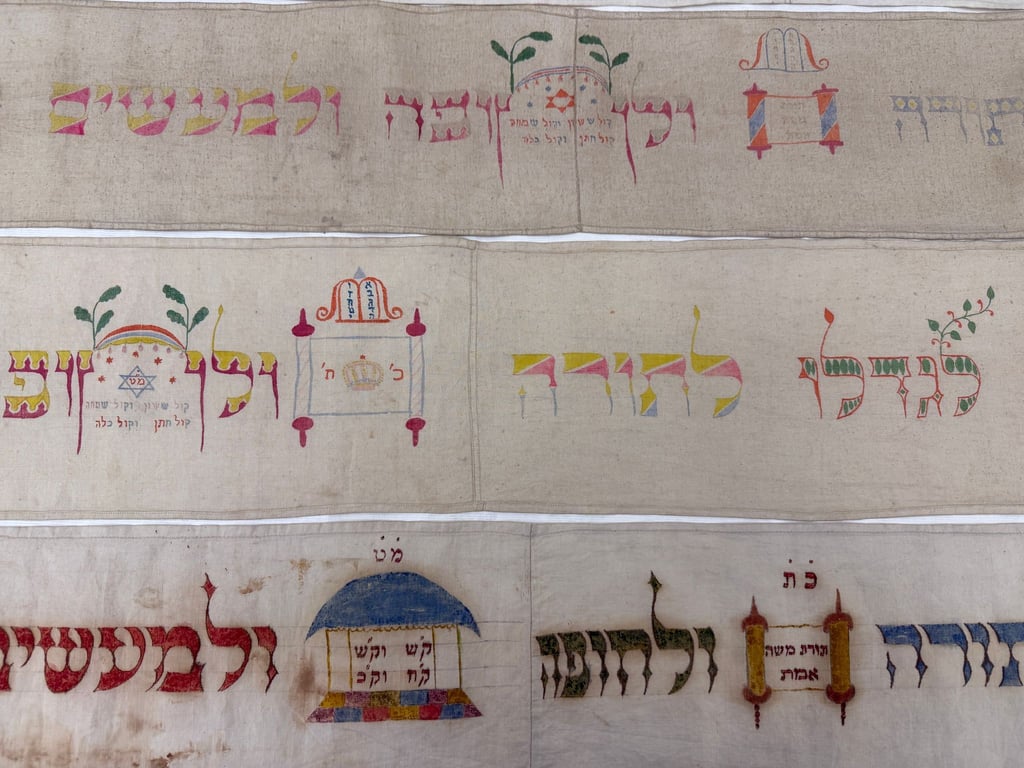 משה
ולחופה
קול ששון וקול שמחה
קול חתן וקול כלה
ולמעשים
לגדלו
לתורה
א ב ג ד ה ו ז ח ט י
כ' ת'
ולחופ
מט
קול ששון וקול שמחה
קול חתן וקול כלה
תורה
כ ת
ותורת משה
אמת
ולחופה
מ ט
ק"ש וק"ש
ק"ח וק"כ
ולמעשים